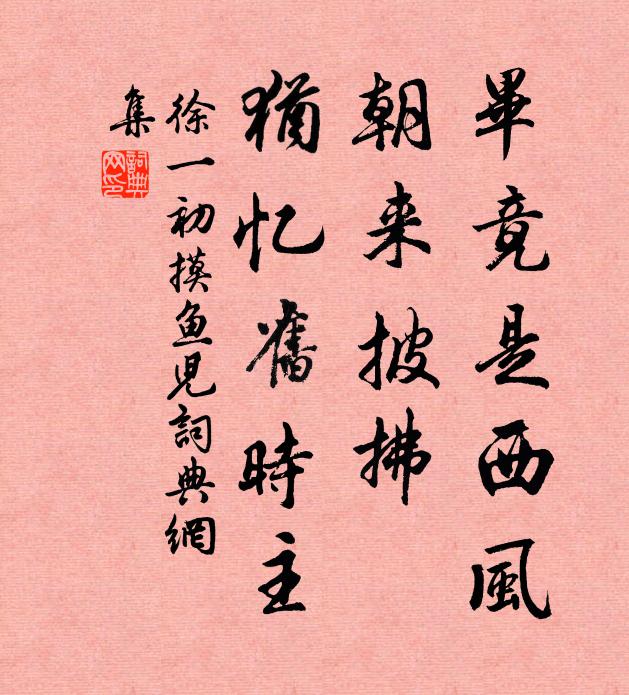 畢竟是西風
朝来披拂
猶忆舊時主
徐一初摸魚児詞典網
集
詞典
网印